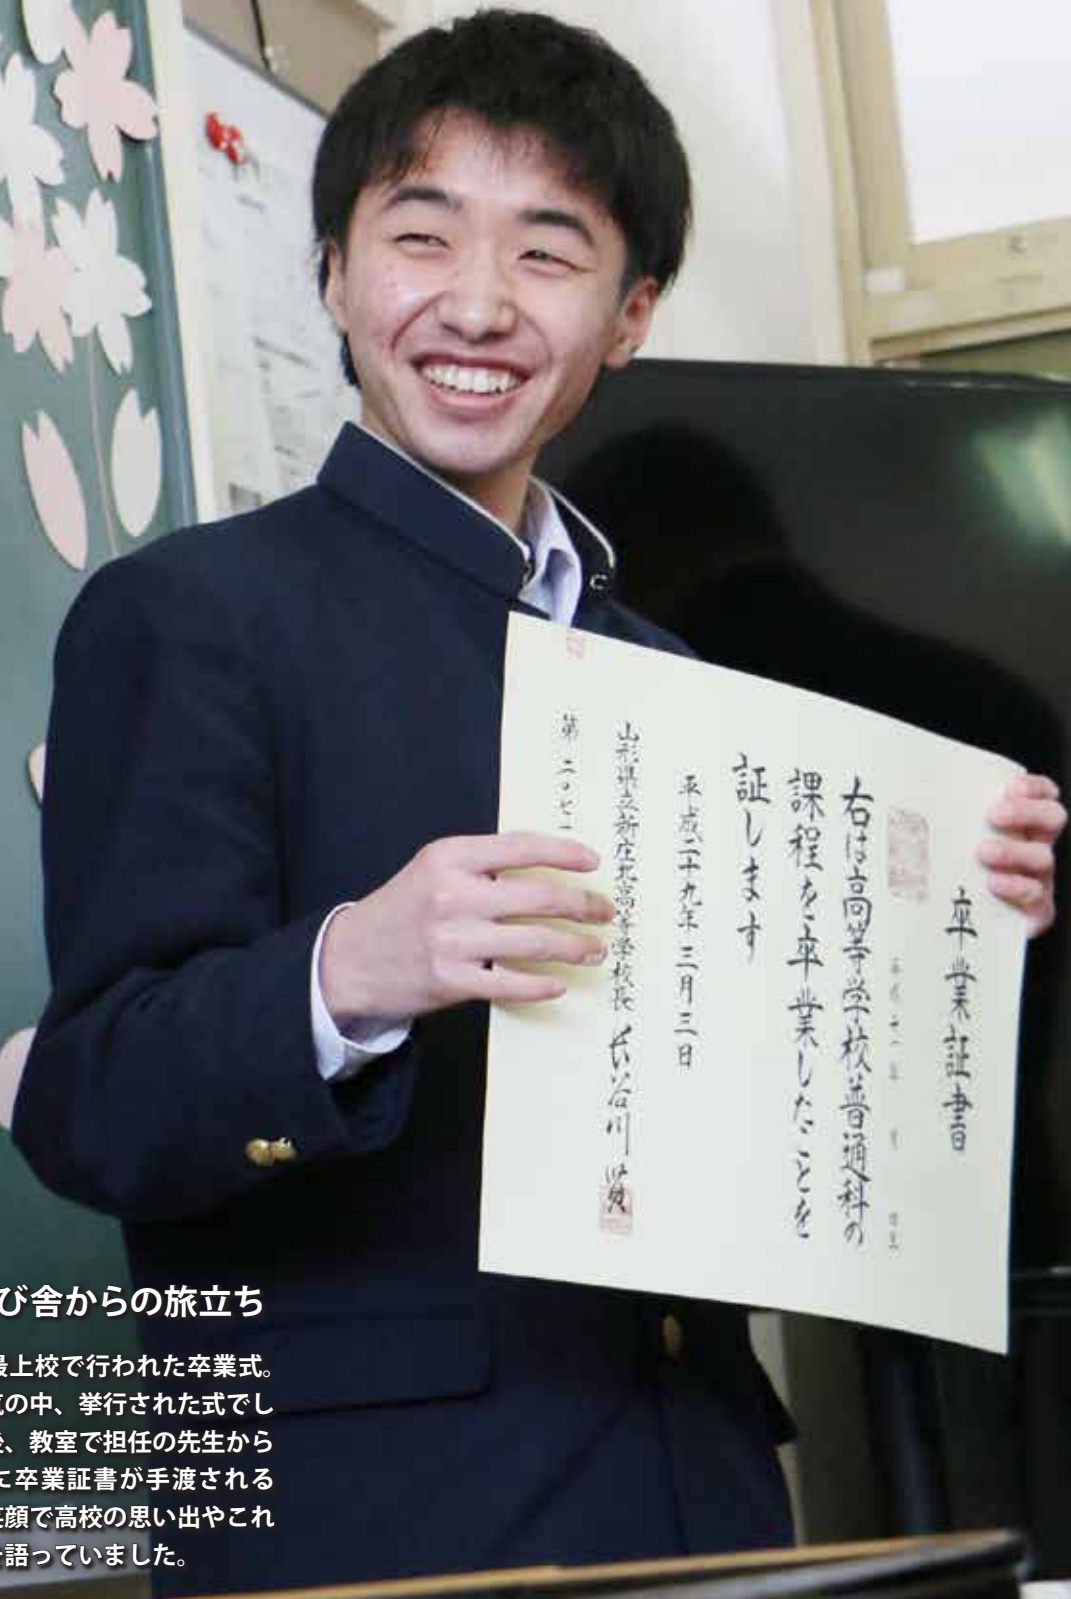 卒業証書
右は高等学校普通科の
課程を卒業したことを
証します
平成二十九年三月三日
山形県立新庄北高等学校長 長谷川 賢
第二〇七一
び舎からの旅立ち
最上校で行われた卒業式。
の中、挙行された式でし
、教室で担任の先生から
に卒業証書が手渡される
笑顔で高校の思い出やこれ
語っていました。